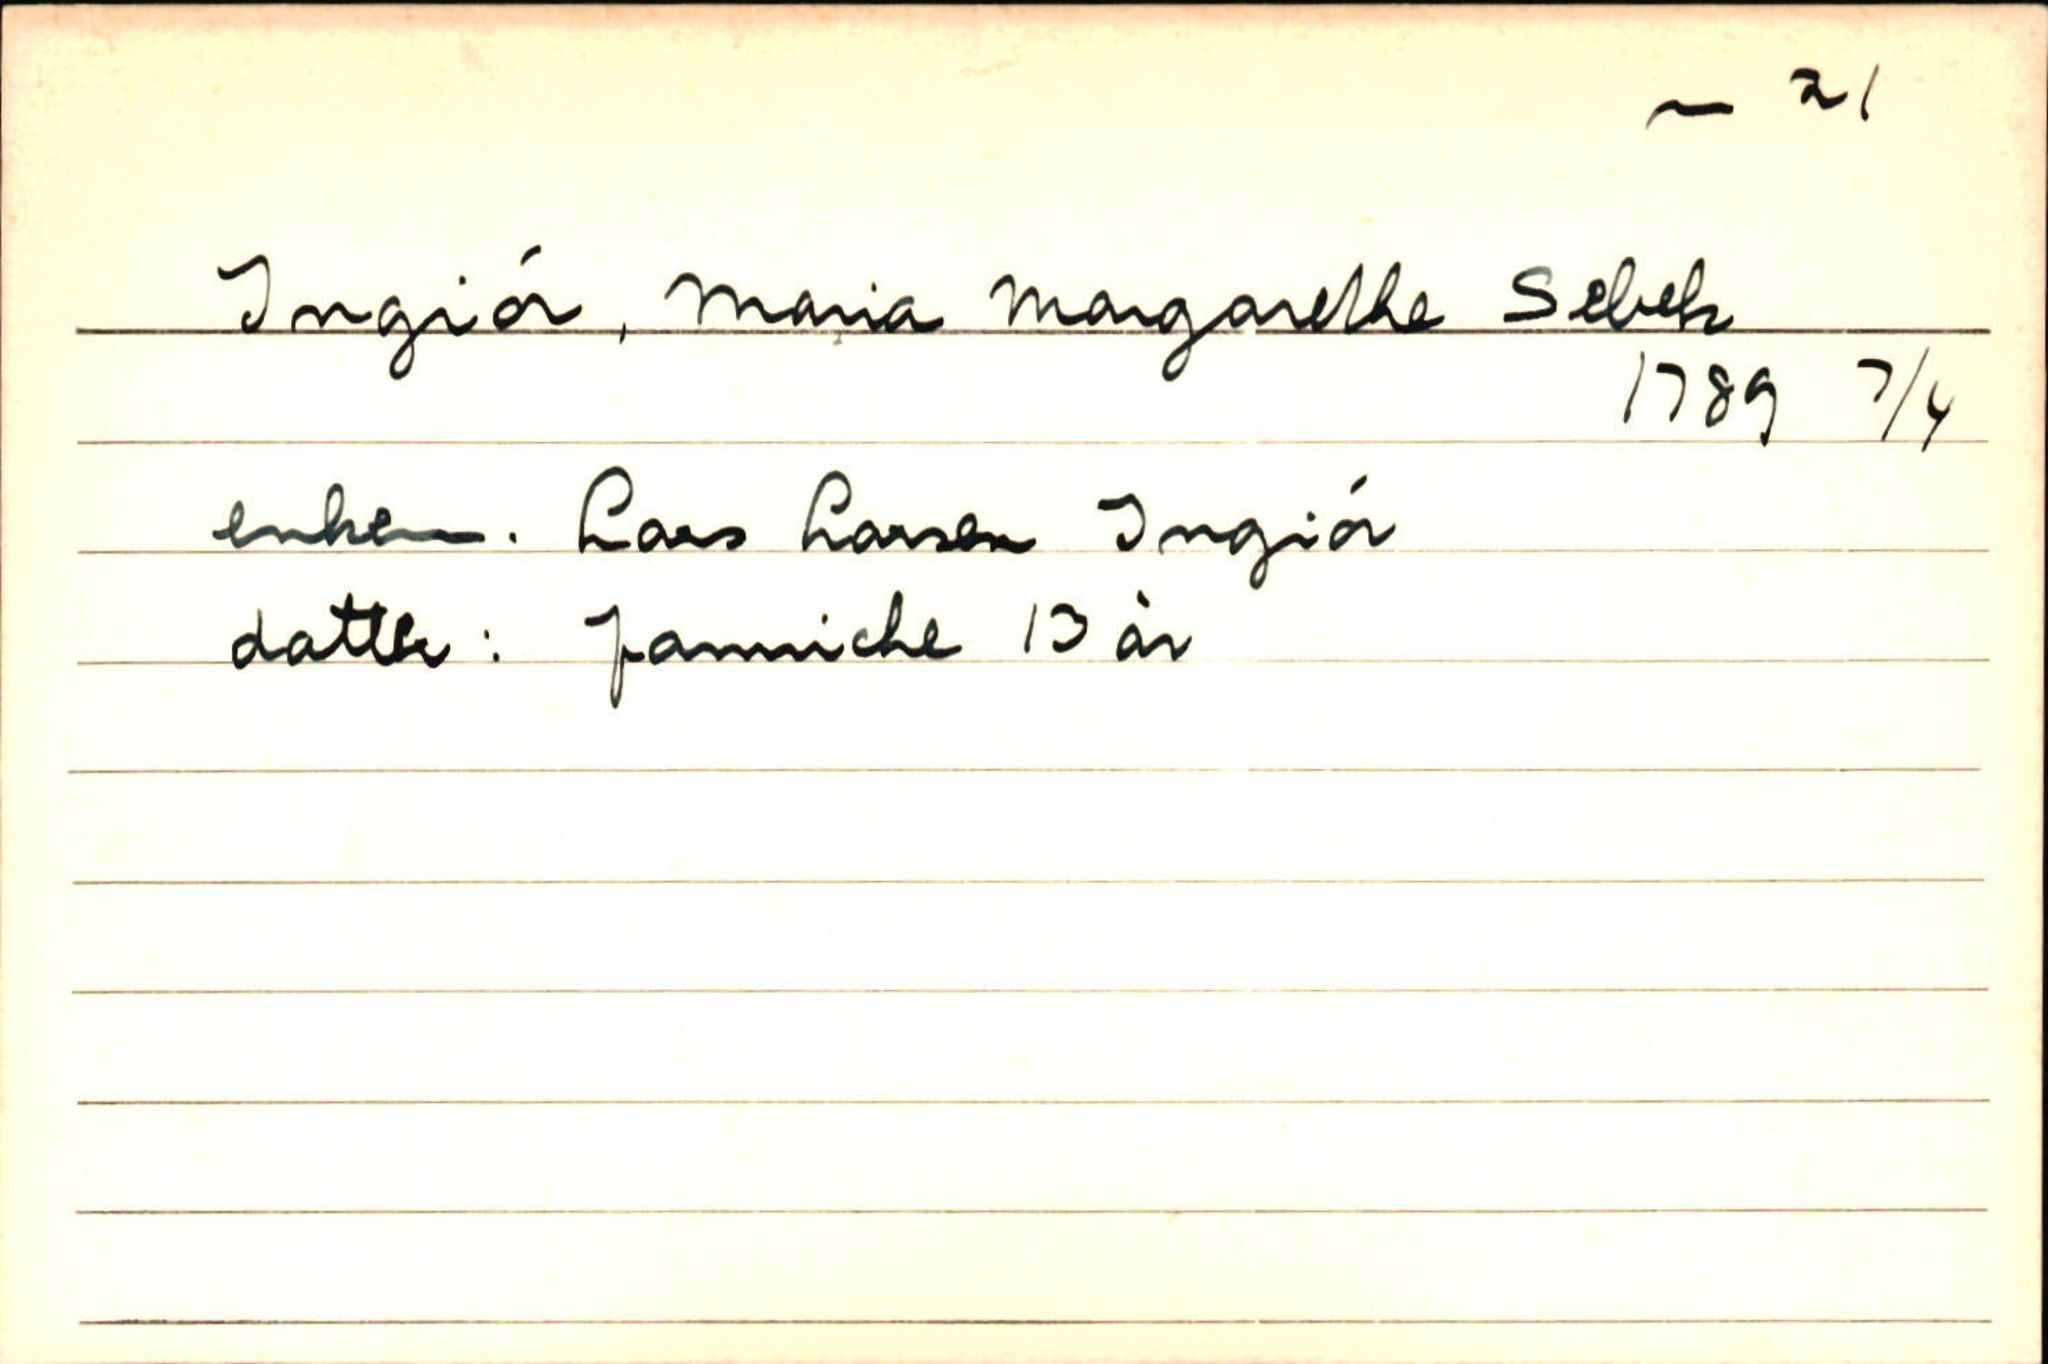 ~ 21
Ingiór, Maria Margarethe Sebek
1789 7/4
enkem. Lars Larsen Ingiór
datter: Janniche 13 år